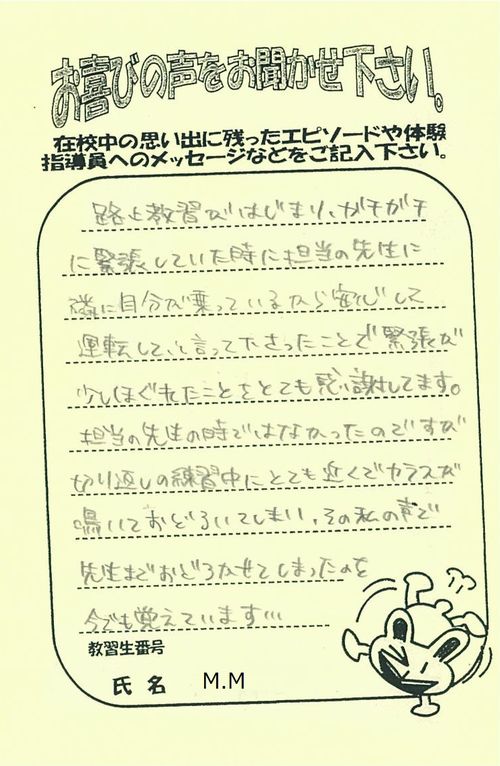 お喜びの声をお聞かせ下さい。
在校中の思い出に残ったエピソードや体験
指導員へのメッセージなどをご記入下さい。
路上教習がはじまり、ガチガチ
に緊張していた時に担当の先生に
隣に自分が乗っているから安心して
運転して、と言って下さったことで緊張が
少しほぐれたことをとても感謝してます。
担当の先生の時ではなかったのですが
切り返しの練習中にとても近くでカラスが
鳴いておどろいてしまい、その私の声で
先生までおどろかせてしまったのを
今でも覚えています…
教習生番号
氏名 M.M